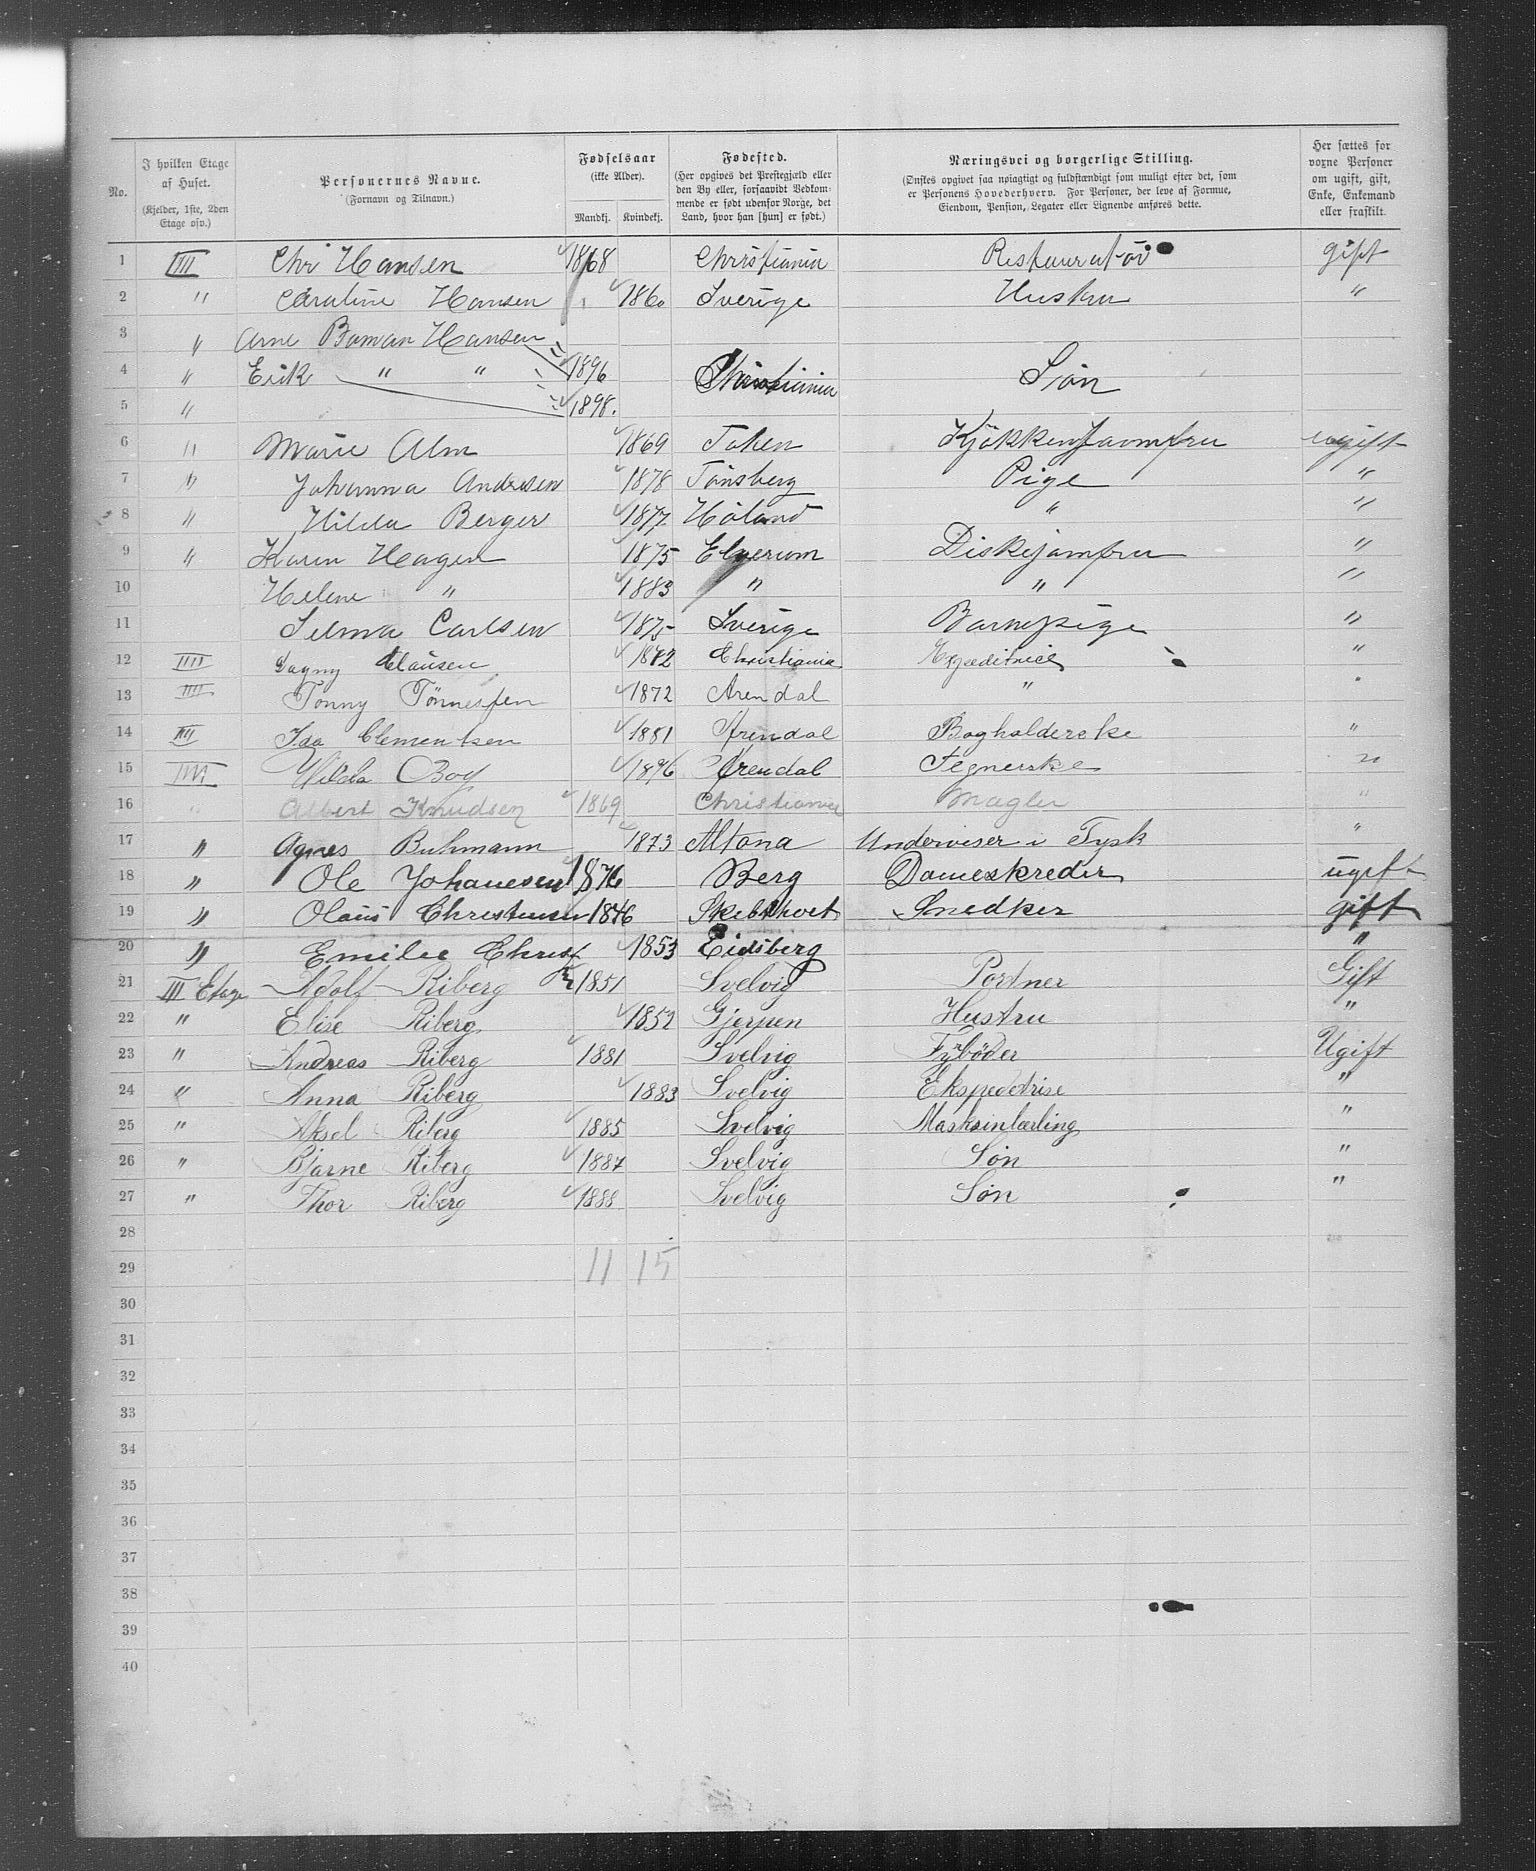 No. | I hvilken Etage af Huset. (Kjelder, 1ste, 2den Etage osv.) | Personernes Navne. (Fornavn og Tilnavn.) | Fødselsaar (ikke Alder). Mandkj. | Kvindekj. | Fødested. (Her opgives det Prestegjæld eller den By eller, forsaavidt Vedkommende er født udenfor Norge, det Land, hvor han [hun] er født.) | Næringsvei og borgerlige Stilling. (Ønskes opgivet saa nøiagtigt og fuldstændigt som muligt efter det, som er Personens Hovederhverv. For Personer, der leve af Formue, Eiendom, Pension, Legater eller Lignende anføres dette.) | Her sættes for voxne Personer om ugift, gift, Enke, Enkemand eller fraskilt.
1 IIII Chr Hansen 1868 Christiania Restauratör gift
2 " Caroline Hansen 1860 Sverige Hustru "
3 " Arne Boman Hansen
4 " Erik " " 1896 Christiania Søn
5 " 1898.
6 " Marie Alm 1869 Token Kjökkenjaamfru ugift
7 " Johanna Andresen 1878 Tønsberg Pige "
8 " Hilda Berger 1877 Höland " "
9 " Karen Hagen 1875 Elverum Diskejomfru "
10 Helene " 1883 " " "
11 Selma Carlsen 1875 Sverige Barnepige "
12 IIII Dagny Clausen 1872 Christiania Expeditrice "
13 IIII Tonny Tønnessen 1872 Arendal " "
14 III Ida Clementsen 1881 Arendal Bogholderske "
15 IIII Hilda Boy 1876 Arendal Tegnerske "
16 " Albert Knudsen 1869 Christiania Mægler "
17 " Agnes Buhmann 1873 Altona Underviser i Tysk "
18 " Ole Johanesen 1876 Berg Dameskreder ugift
19 " Olaüs Christensen 1846 Skebthvet Snedker gift
20 " Emilie Christ 1853 Eidsberg "
21 III Etage Adolf Riberg 1851 Svelvig Portner Gift
22 " Elise Riberg 1852 Gjerpen Hustru "
23 " Andreas Riberg 1881 Svelvig Fyrbøder Ugift
24 " Anna Riberg 1883 Svelvig Ekspedetrise "
25 " Aksel Riberg 1885 Svelvig Masksinlærling "
26 " Bjarne Riberg 1887 Svelvig Søn "
27 " Thor Riberg 1888 Svelvig Søn "
28
29 11 15
30
31
32
33
34
35
36
37
38
39
40